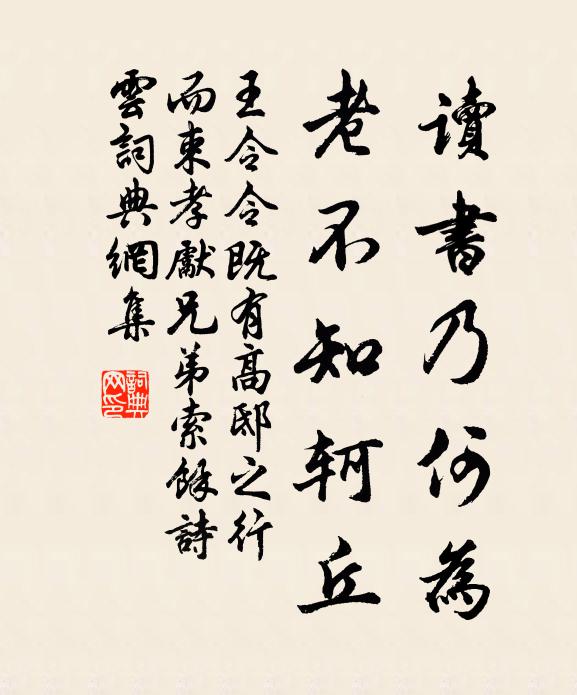 讀書乃何為
老不知軻丘
王令令既有高邸之行
而束孝獻兄弟索餘詩
雲詞典網集
詞典网印